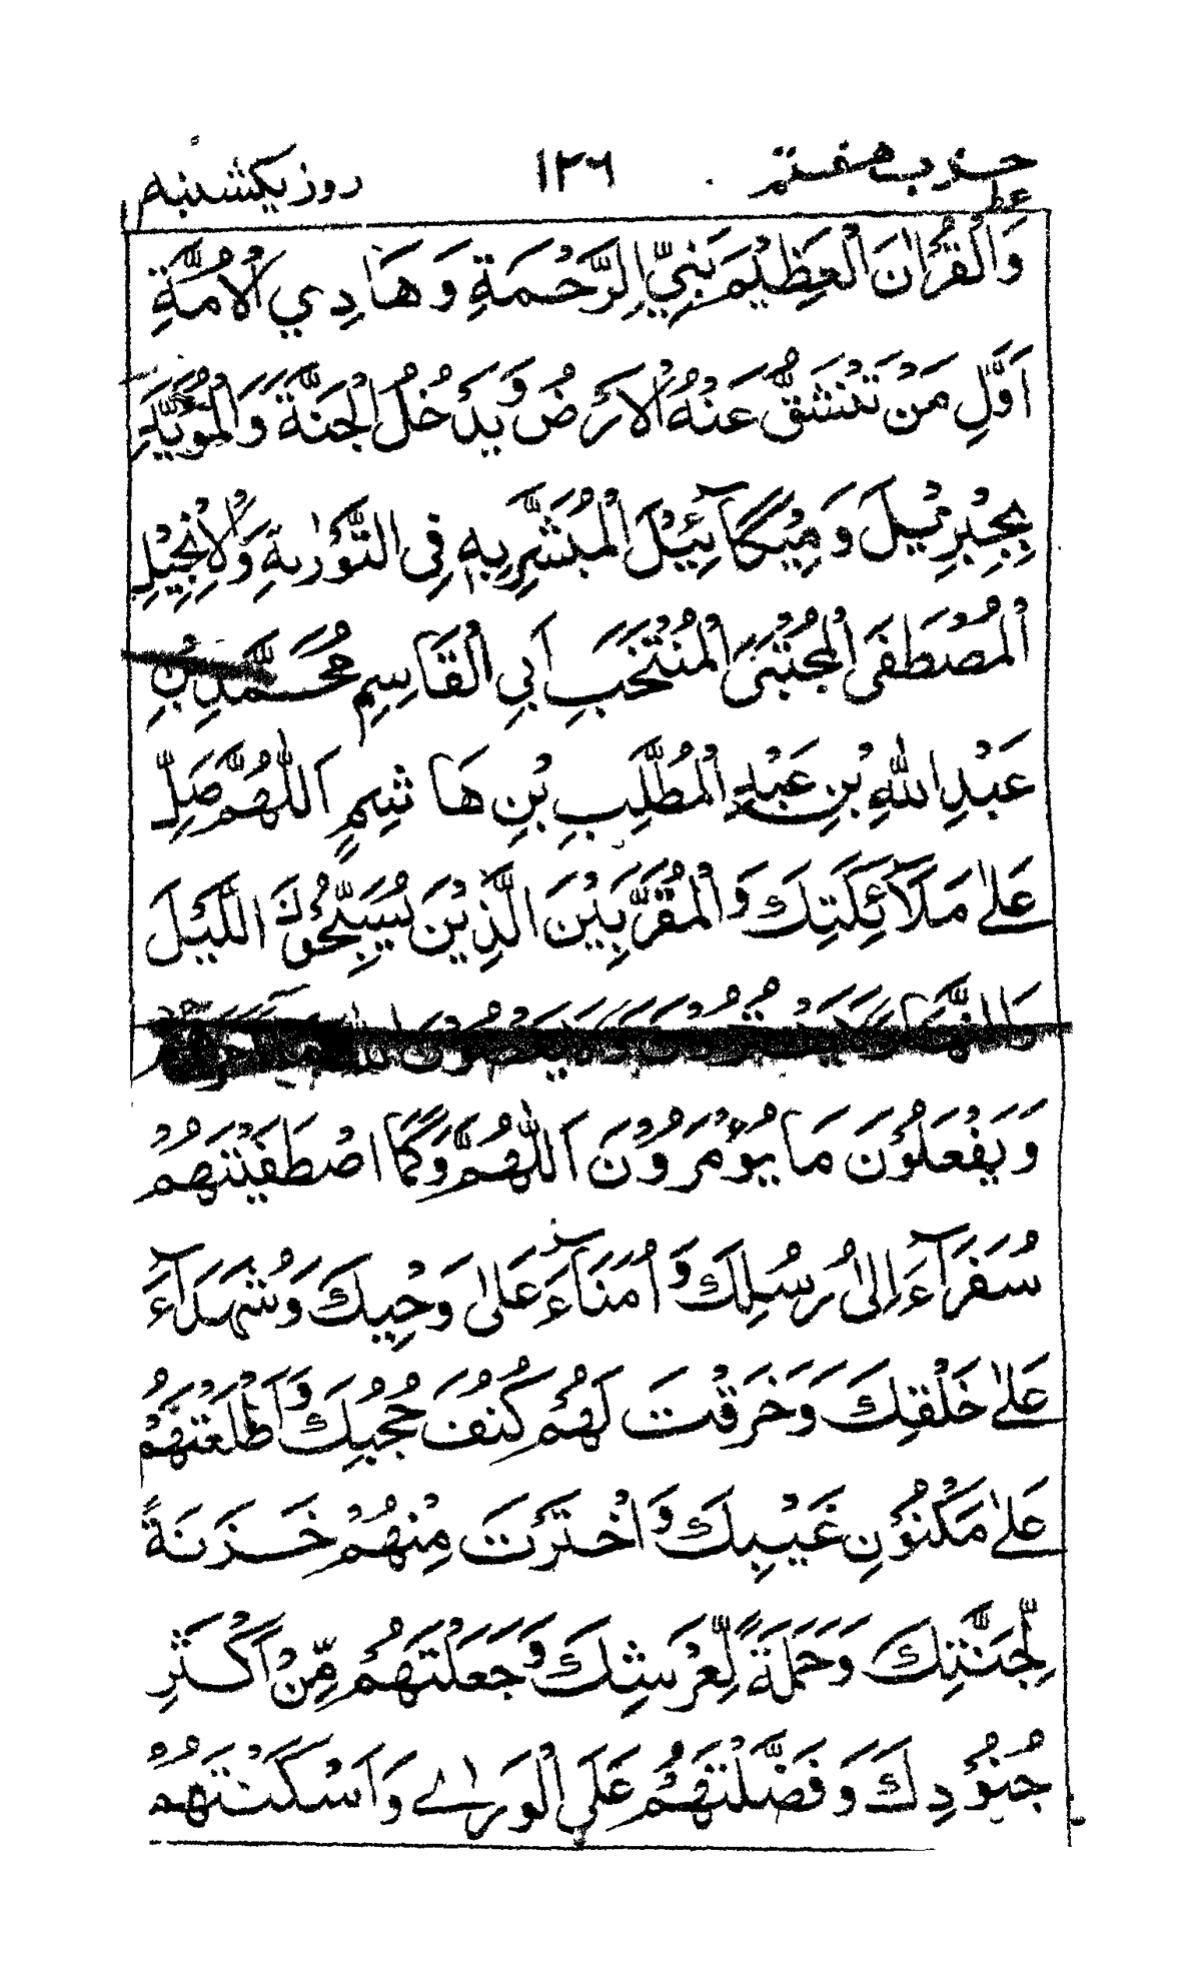 حزب هفتم ١٢٦ روز یکشنبه
وَالْقُرْاٰنَ الْعَظِيْمَ نَبِيِّ الرَّحْمَةِ وَهَادِي الْاُمَّةِ
اَوَّلِ مَنْ تَنْشَقُّ عَنْهُ الْاَرْضُ وَيَدْخُلُ الْجَنَّةَ وَالْمُؤَيَّدِ
بِجِبْرِئِيْلَ وَمِيْكَآئِيْلَ الْمُبَشَّرِ بِهٖ فِي التَّوْرٰىةِ وَالْاِنْجِيْلِ
الْمُصْطَفَى الْمُجْتَبَى الْمُنْتَخَبِ اَبِي الْقَاسِمِ مُحَمَّدِ بْنِ
عَبْدِ اللّٰهِ بْنِ عَبْدِ الْمُطَّلِبِ بْنِ هَاشِمٍ اَللّٰهُمَّ صَلِّ
عَلٰى مَلَآئِكَتِكَ وَالْمُقَرَّبِيْنَ الَّذِيْنَ يُسَبِّحُوْنَكَ اللَّيْلَ
وَالنَّهَارَ لَا يَفْتُرُوْنَ وَلَا يَعْصُوْنَ اللّٰهَ مَآ اَمَرَهُمْ
وَيَفْعَلُوْنَ مَا يُؤْمَرُوْنَ اَللّٰهُمَّ وَكَمَا اصْطَفَيْتَهُمْ
سُفَرَآءَ اِلٰى رُسُلِكَ وَاُمَنَآءَ عَلٰى وَحْيِكَ وَشُهَدَآءَ
عَلٰى خَلْقِكَ وَخَرَقْتَ لَهُمْ كُنُفَ حُجُبِكَ وَاَطْلَعْتَهُمْ
عَلٰى مَكْنُوْنِ غَيْبِكَ وَاخْتَرْتَ مِنْهُمْ خَزَنَةً
لِّجَنَّتِكَ وَحَمَلَةً لِّعَرْشِكَ وَجَعَلْتَهُمْ مِّنْ اَكْثَرِ
جُنُوْدِكَ وَفَضَّلْتَهُمْ عَلَى الْوَرٰى وَاَسْكَنْتَهُمْ